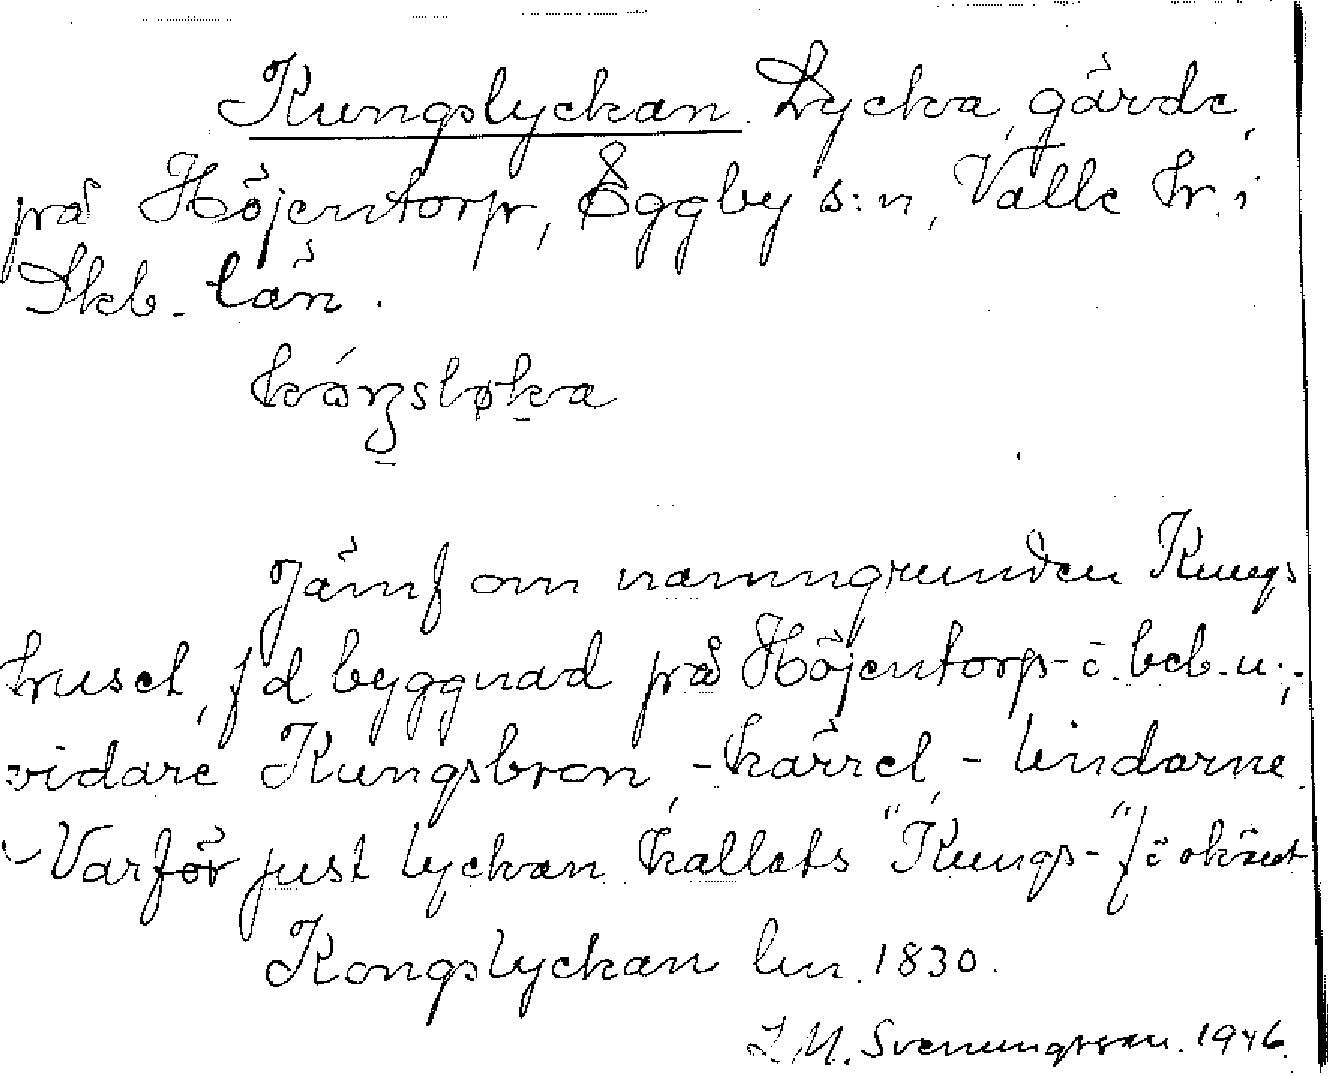 Kungslyckan. Lycka, gärde,
på Höjentorp, Eggby s:n, Valle hr. i
Skb. län.

Jämf om namngrunden Kungs
huset, fd byggnad på Höjentorp i beb.u.;
vidare Kungsbron, -kärret, -lindarne.
Varför just lyckan kallats "Kungs-" f
Kongslyckan lm. 1830.
L M. Svenungsson. 1946.